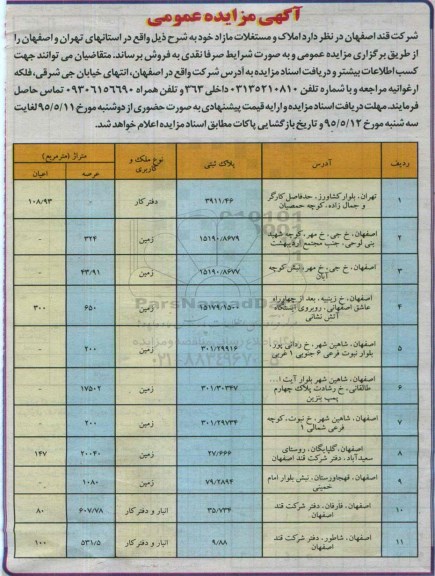 آگهی مزایده عمومی
شرکت قند اصفهان در نظر دارد املاک و مستغلات مازاد خود به شرح ذیل واقع در استانهای تهران و اصفهان را
از طریق برگزاری مزایده عمومی و به صورت شرایط صرفا نقدی به فروش برساند. متقاضیان می توانند جهت
کسب اطلاعات بیشتر و دریافت اسناد مزایده به آدرس شرکت واقع در اصفهان، انتهای خیابان جی شرقی، فلکه
ارغوانیه مراجعه و یا شماره تلفن ۰۳۱۳۵۲۱۰۸۱۰ داخلی ۳۶۳ و تلفن همراه ۰۹۳۰۶۱۵۶۶۹۰ تماس حاصل
فرمایند. مهلت دریافت اسناد مزایده و ارایه قیمت پیشنهادی به صورت حضوری از دوشنبه مورخ ۹۵/۵/۱۱ لغایت
سه شنبه مورخ ۹۵/۵/۱۲ و تاریخ بازگشایی پاکات مطابق اسناد مزایده اعلام خواهد شد.
ردیف آدرس پلاک ثبتی نوع ملک و کاربری متراژ (مترمربع)
عرصه اعیان
۱ تهران، بلوار کشاورز، حدفاصل کارگر ۳۹۱۱/۴۶ دفتر کار - ۱۰۸/۹۳
و جمال زاده، کوچه حمصیان
۲ اصفهان، خ جی، خ مهر، کوچه شهید ۱۵۱۹۰/۸۶۷۹ زمین ۳۲۴ -
بنی لوحی، جنب مجتمع اردیبهشت
۳ اصفهان، خ جی، خ مهر، نبش کوچه ۱۵۱۹۰/۸۶۷۷ زمین ۴۳/۹۱ -
آبان
۴ اصفهان، خ زینبیه، بعد از چهارراه ۱۵۱۷۹/۱۵۰۰ زمین ۶۵۰ ۳۰۰
عاشق اصفهانی، روبروی ایستگاه
آتش نشانی
۵ اصفهان، شاهین شهر، خ ردانی پور، ۳۰۱/۲۹۹۱۶ زمین ۲۰۰ -
بلوار نبوت فرعی ۶ جنوبی ۱ غربی
۶ اصفهان، شاهین شهر بلوار آیت ا... ۳۰۱/۳۰۳۴۷ زمین ۱۷۵۰۲ -
طالقانی، خ رشادت پلاک چهارم
پمپ بنزین
۷ اصفهان، شاهین شهر، خ نبوت، کوچه ۳۰۱/۲۹۷۳۴ زمین ۲۰۰ -
فرعی شمالی ۱
۸ اصفهان، گلپایگان، روستای ۲۷/۶۶۶ زمین ۲۰۰۴۰ ۱۴۷
سعیدآباد، دفتر شرکت قند اصفهان
۹ اصفهان، قهجاورستان، نبش بلوار امام ۷۹/۲۸۹۴ زمین ۱۰۸۰ -
خمینی
۱۰ اصفهان، فارفان، دفتر شرکت قند ۳۵/۷۳۴ انبار و دفتر کار ۶۰۷/۷۸ ۸۰
اصفهان
۱۱ اصفهان، شاطور، دفتر شرکت قند ۹/۸۸ انبار و دفتر کار ۵۳۱/۵ ۱۰۰
اصفهان